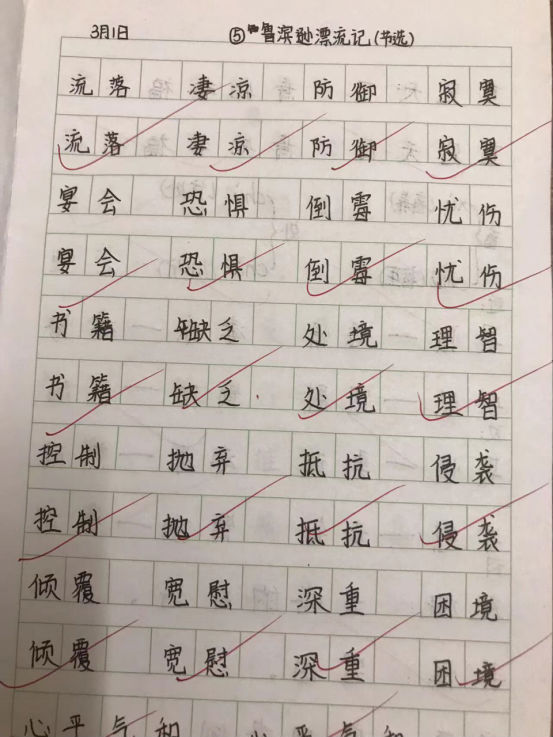 3月1日 ⑤*鲁滨逊漂流记(节选)
流落 凄凉 防御 寂寞
流落 凄凉 防御 寂寞
宴会 恐惧 倒霉 忧伤
宴会 恐惧 倒霉 忧伤
书籍 缺乏 处境 理智
书籍 缺乏 处境 理智
控制 抛弃 抵抗 侵袭
控制 抛弃 抵抗 侵袭
倾覆 宽慰 深重 困境
倾覆 宽慰 深重 困境
心平气和 心平气和